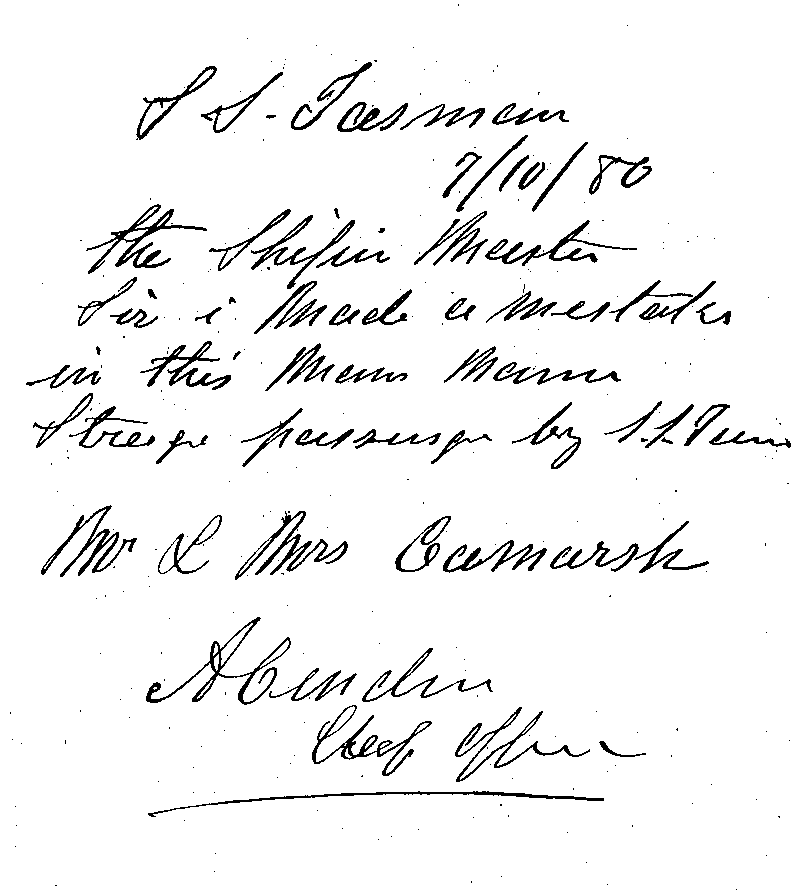 S S. Tasman
7/10/80
the Shifin Master
Sir i Made a mestake
in this Mans Name
Streage passenge by S.S.
Mr & Mrs Camarsh
A
Cheef Officer